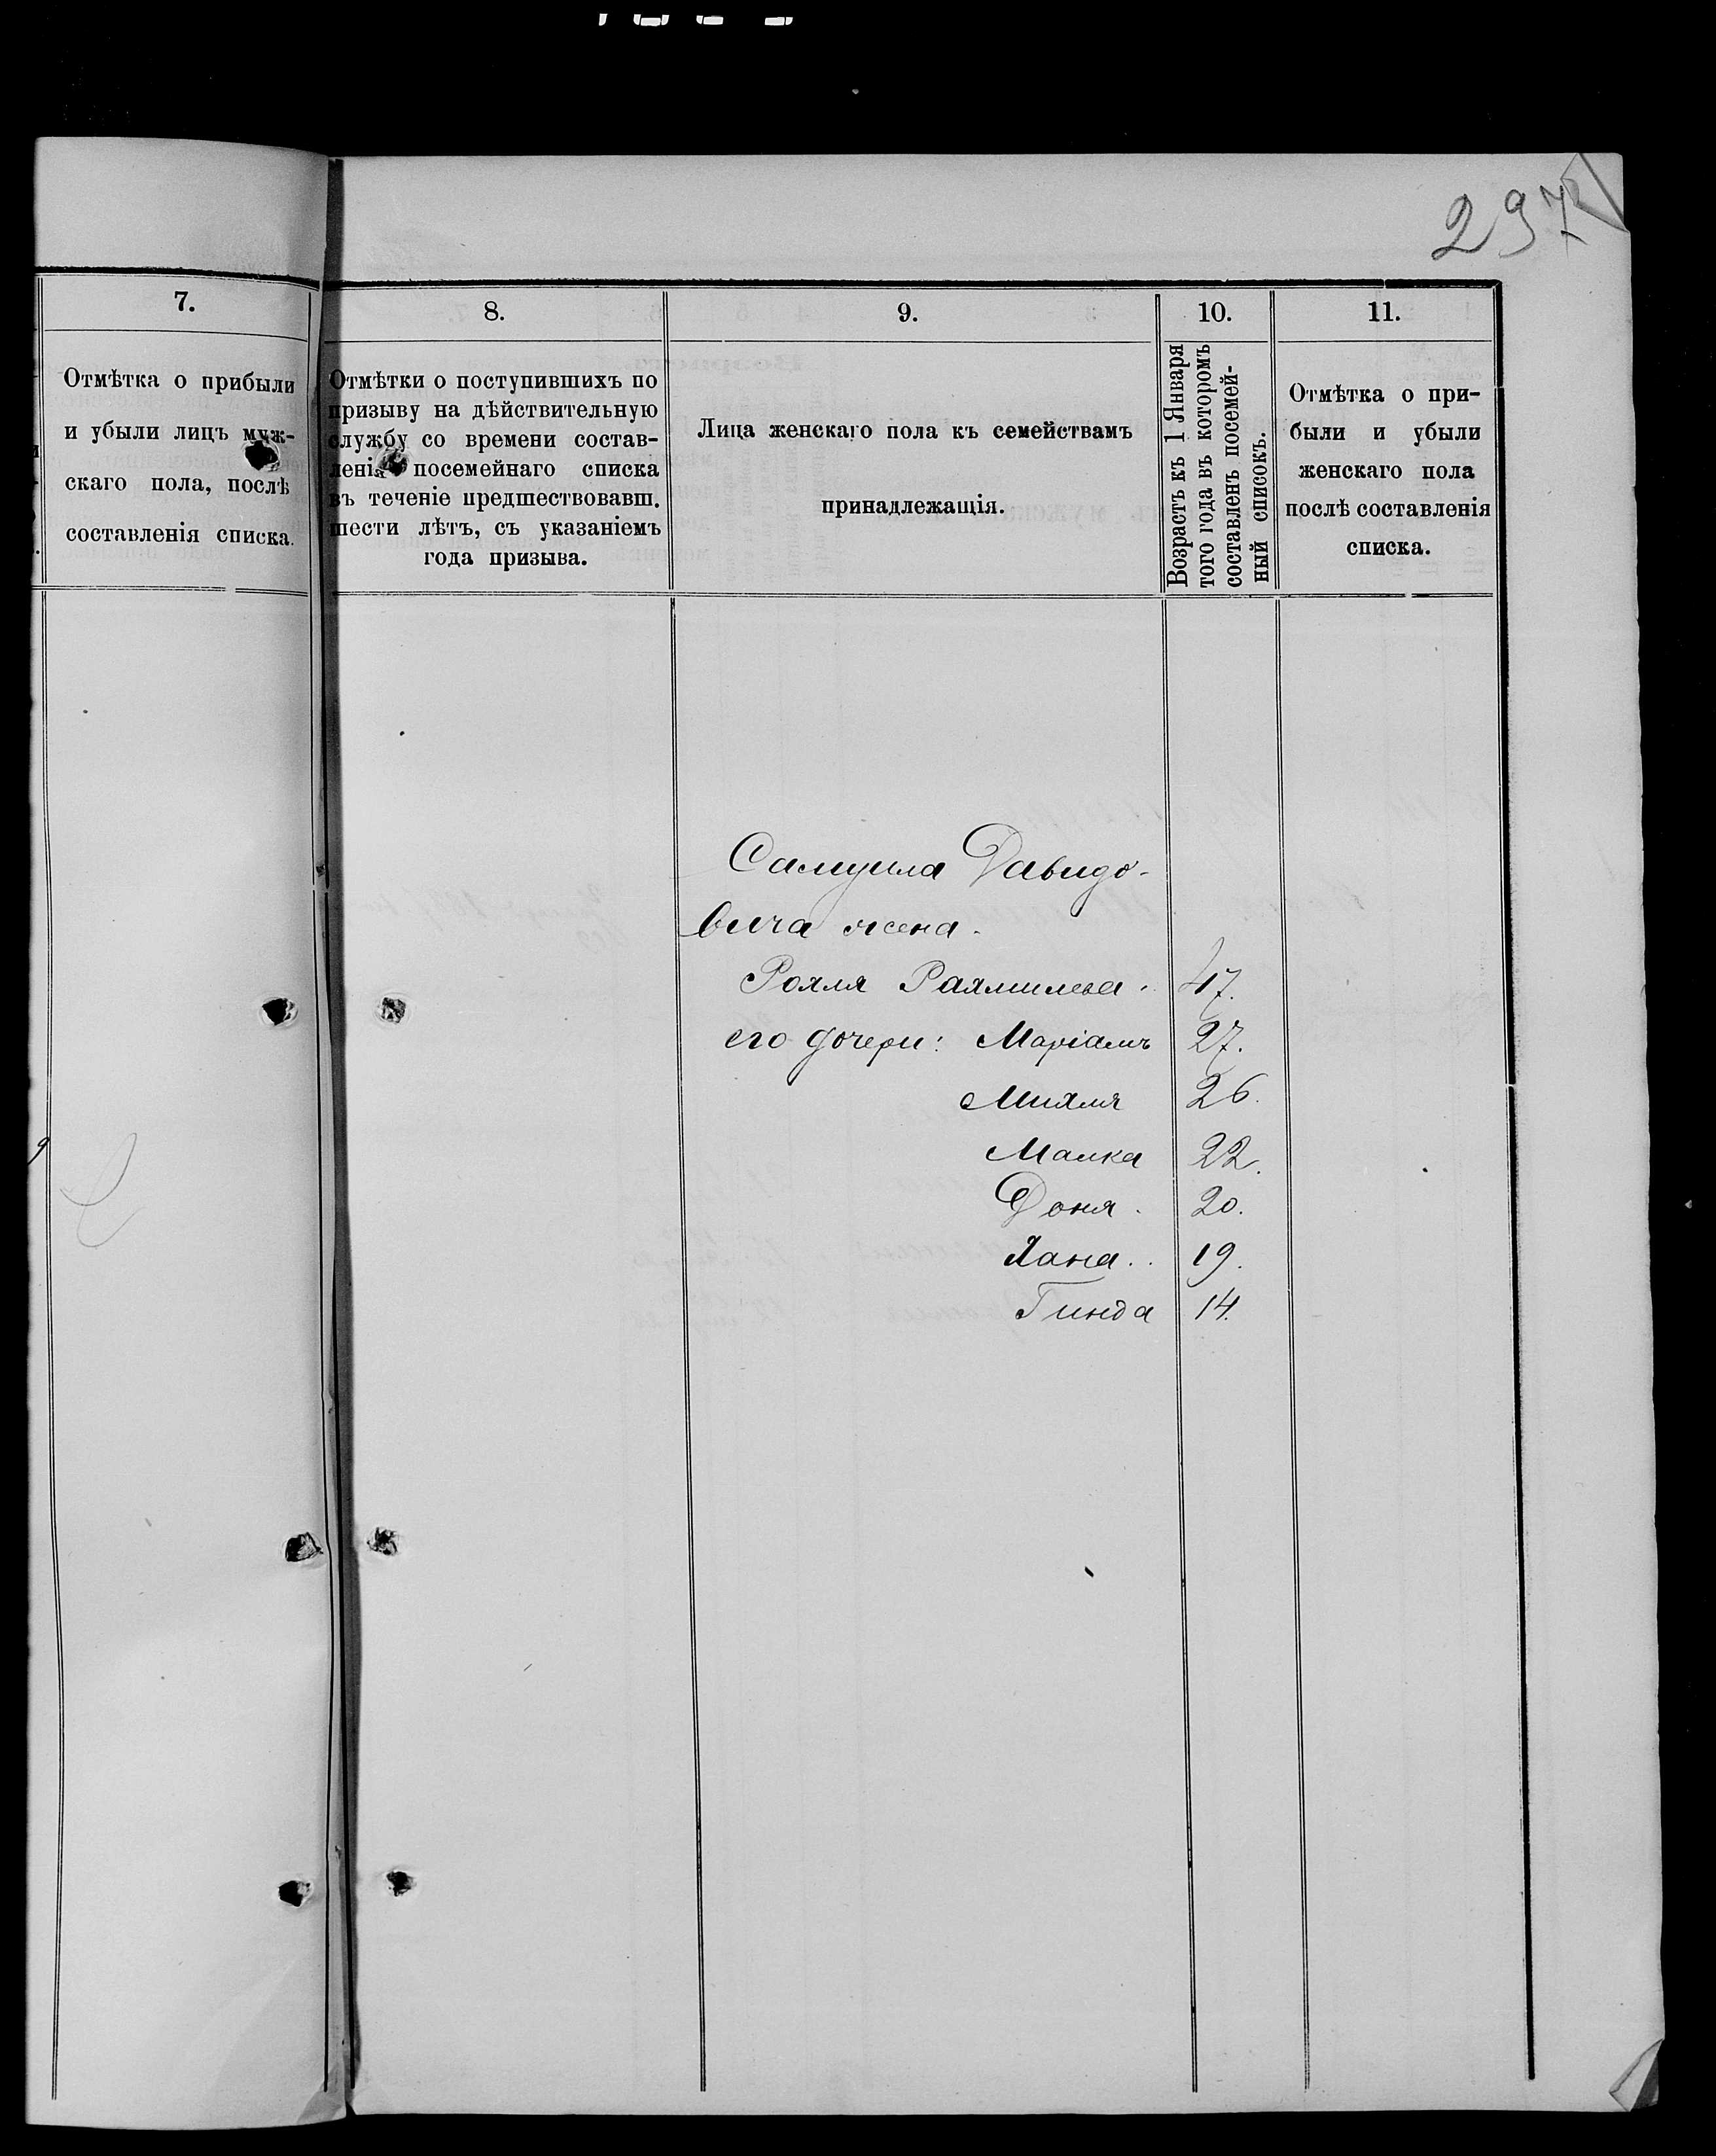 297
7.
Отмѣтка о прибыли
и убыли лицъ муж-
скаго пола, послѣ
составленія списка.
8.
Отмѣтки о поступившихъ по
призыву на дѣйствительную
службу со времени состав-
ленія посемейнаго списка
въ теченіе предшествовавш.
шести лѣтъ, съ указаніемъ
года призыва.
9.
Лица женскаго пола къ семействамъ
принадлежащія.
10.
Возрастъ къ 1 Января
того года въ которомъ
составленъ посемей-
ный списокъ.
11.
Отмѣтка о при-
были и убыли
женскаго пола
послѣ составленія
списка.
Самуила Давидо-
вича жена.
Рохля Рахмилева. 47.
его дочери: Маріамъ 27.
Михля 26.
Малка 22.
Доня. 20.
Хана. 19.
Гинда 14.